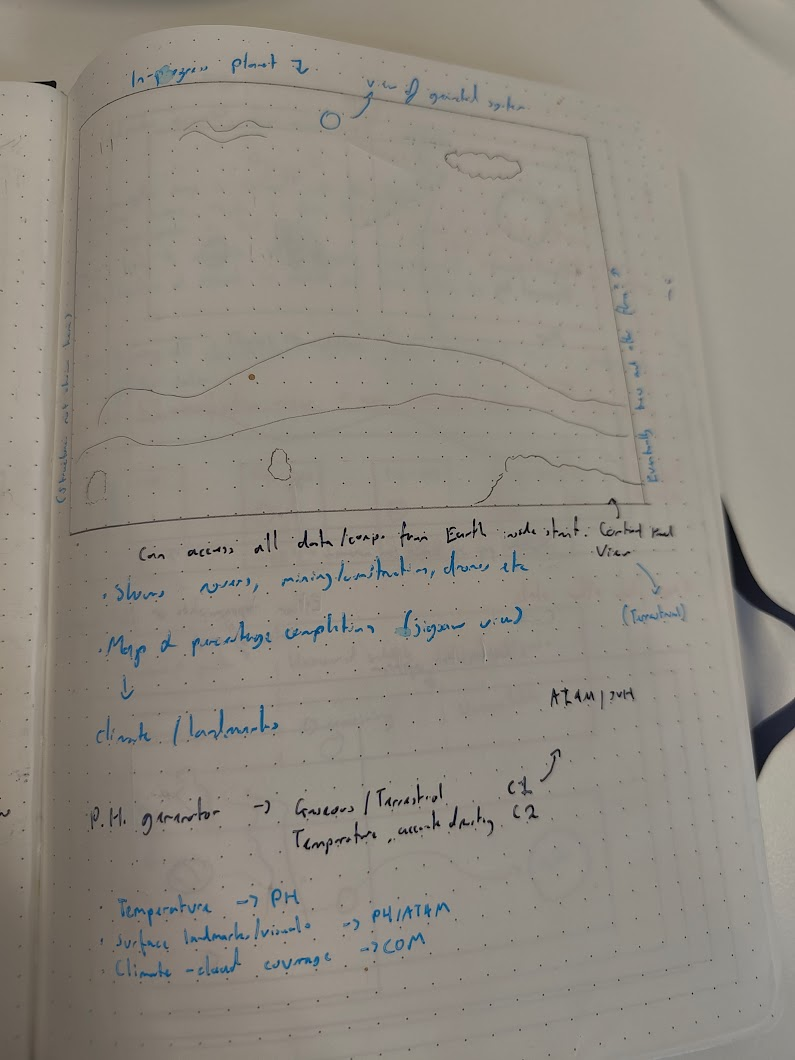 In-progress planet Z
view of generated system
(Structures not shown here)
Eventually have out after form
Can access all data/comps from Earth inside start.
Control Panel
View
(Terrestrial)
· Shows rovers, mining/construction, drones etc
· Map & percentage completion (jigsaw view)
↓
Climate / landmarks
ATAM/
P.H. generator → Gaseous/Terrestrial C1
Temperature, C2
· Temperature → PH
· Surface landmarks/visuals → PH/ATAM
· Climate - cloud coverage → COM